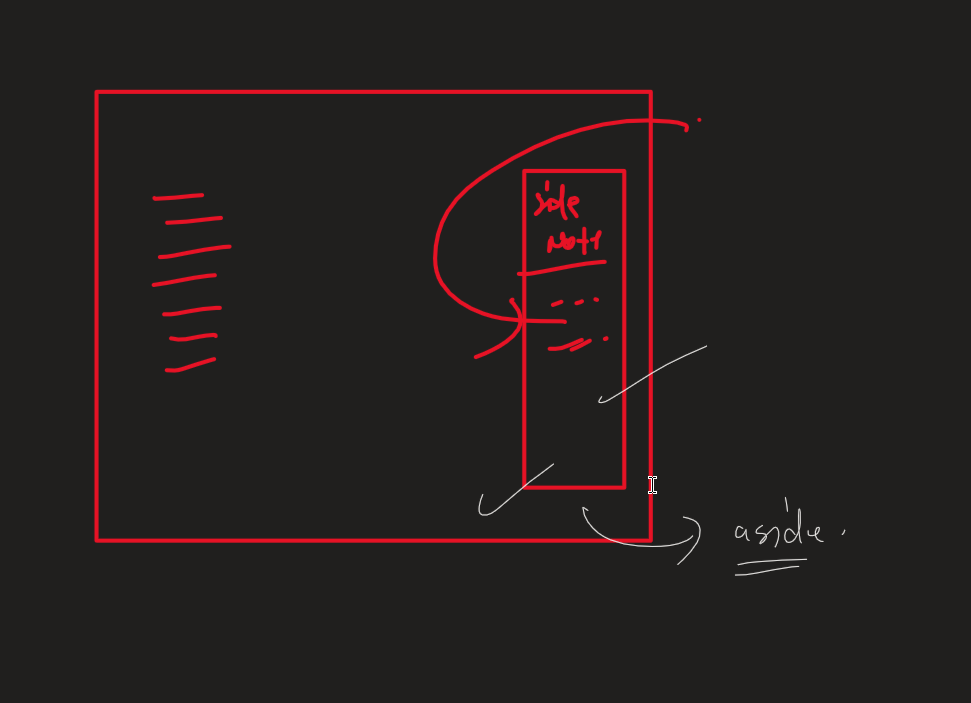 side
note
aside.